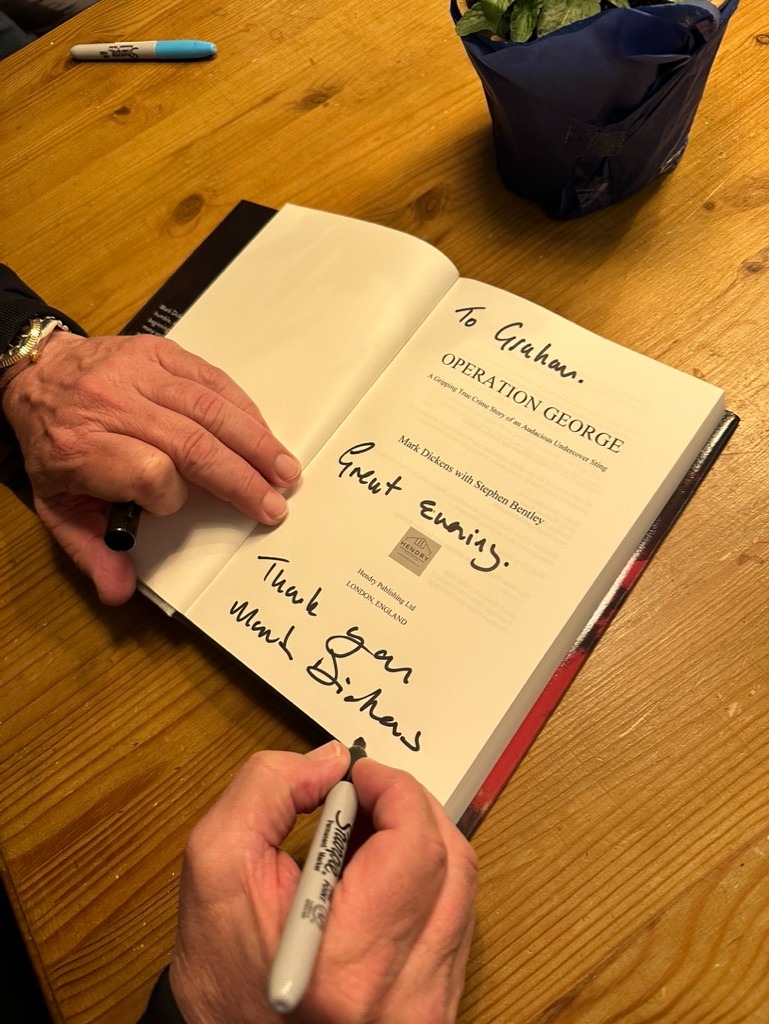 Sharpie
To Graham.
OPERATION GEORGE
A Gripping True Crime Story of an Audacious Undercover Sting
Mark Dickens with Stephen Bentley
Great Evening.
HENDRY
Hendry Publishing Ltd
LONDON, ENGLAND
Thank you
Mark Dickens
Sharpie
PERMANENT MARKER